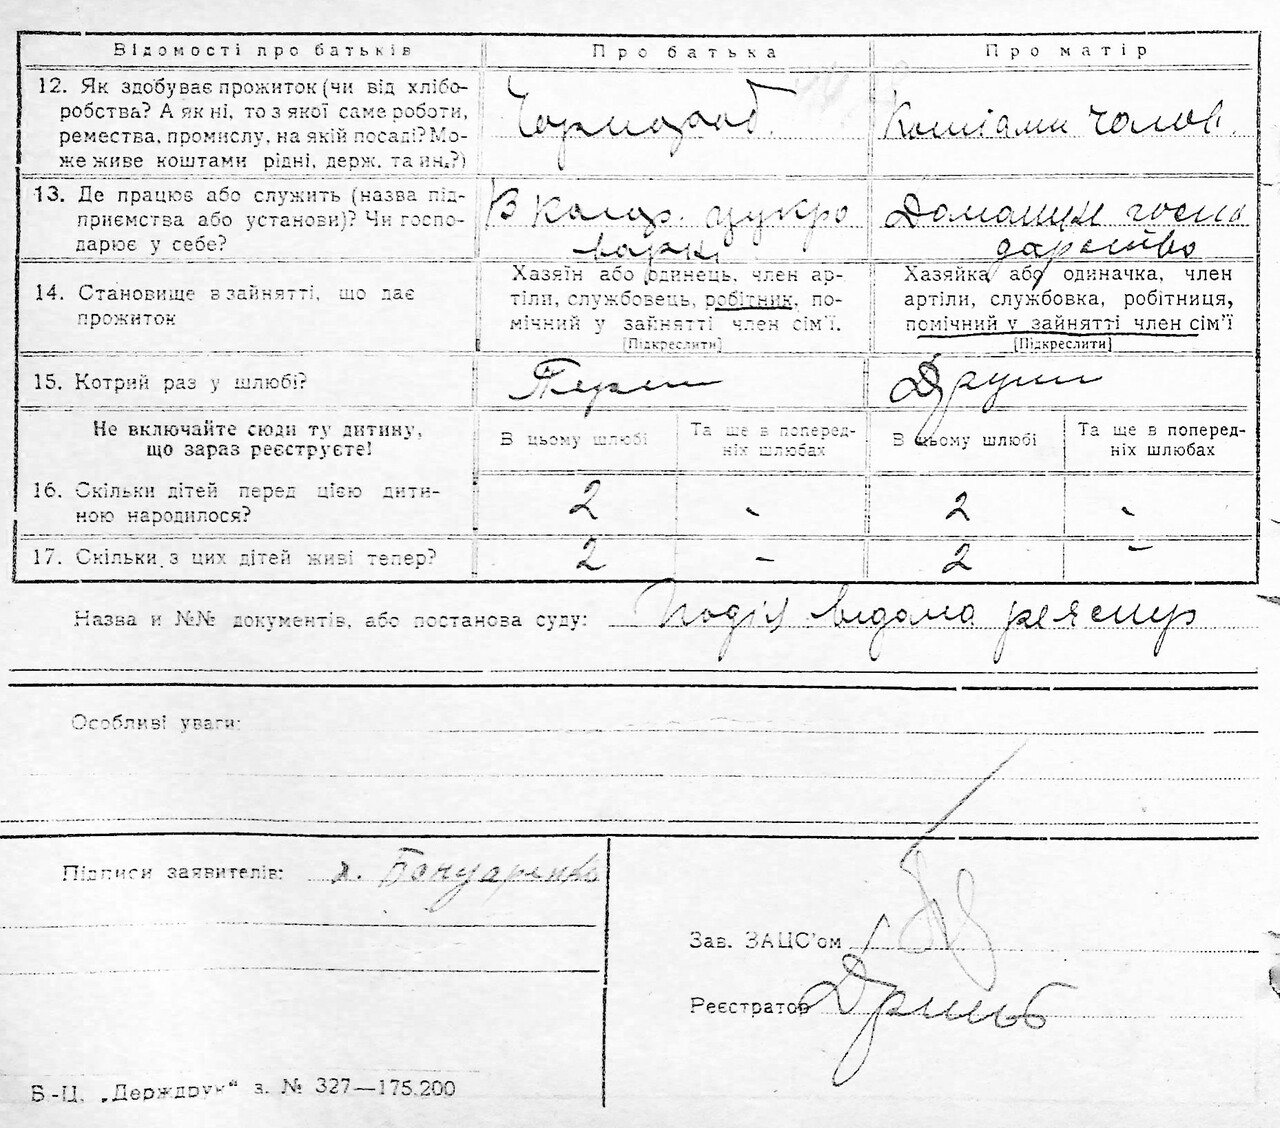 Відомості про батьків
Про батька
Про матір
12. Як здобуває прожиток (чи від хлібо-
робства? А як ні, то з якої саме роботи,
ремества, промислу, на якій посаді? Мо-
же живе коштами рідні, держ. та ин.?)
Чорнороб.
Коштами чолов.
13. Де працює або служить (назва під-
приємства або установи)? Чи госпо-
дарює у себе?
В цукро
варні
Домашнє госпо
дарство
14. Становище в зайнятті, що дає
прожиток
Хазяїн або одинець, член ар-
тіли, службовець, робітник, по-
мічний у зайнятті член сім'ї.
[Підкреслити]
Хазяйка або одиначка, член
артіли, службовка, робітниця,
помічний у зайнятті член сім'ї
[Підкреслити]
15. Котрий раз у шлюбі?
Перший
Другий
Не включайте сюди ту дитину,
що зараз реєструєте!
В цьому шлюбі
Та ще в поперед-
ніх шлюбах
В цьому шлюбі
Та ще в поперед-
ніх шлюбах
16. Скільки дітей перед цією дити-
ною народилося?
2
-
2
-
17. Скільки з цих дітей живі тепер?
2
-
2
-
Назва и №№ документів, або постанова суду: Подія відома
Особливі уваги:
Підписи заявителів: Бондаренко
Зав. ЗАЦС'ом
Реєстратор
Б.-Ц. „Держдрук" з. № 327—175.200